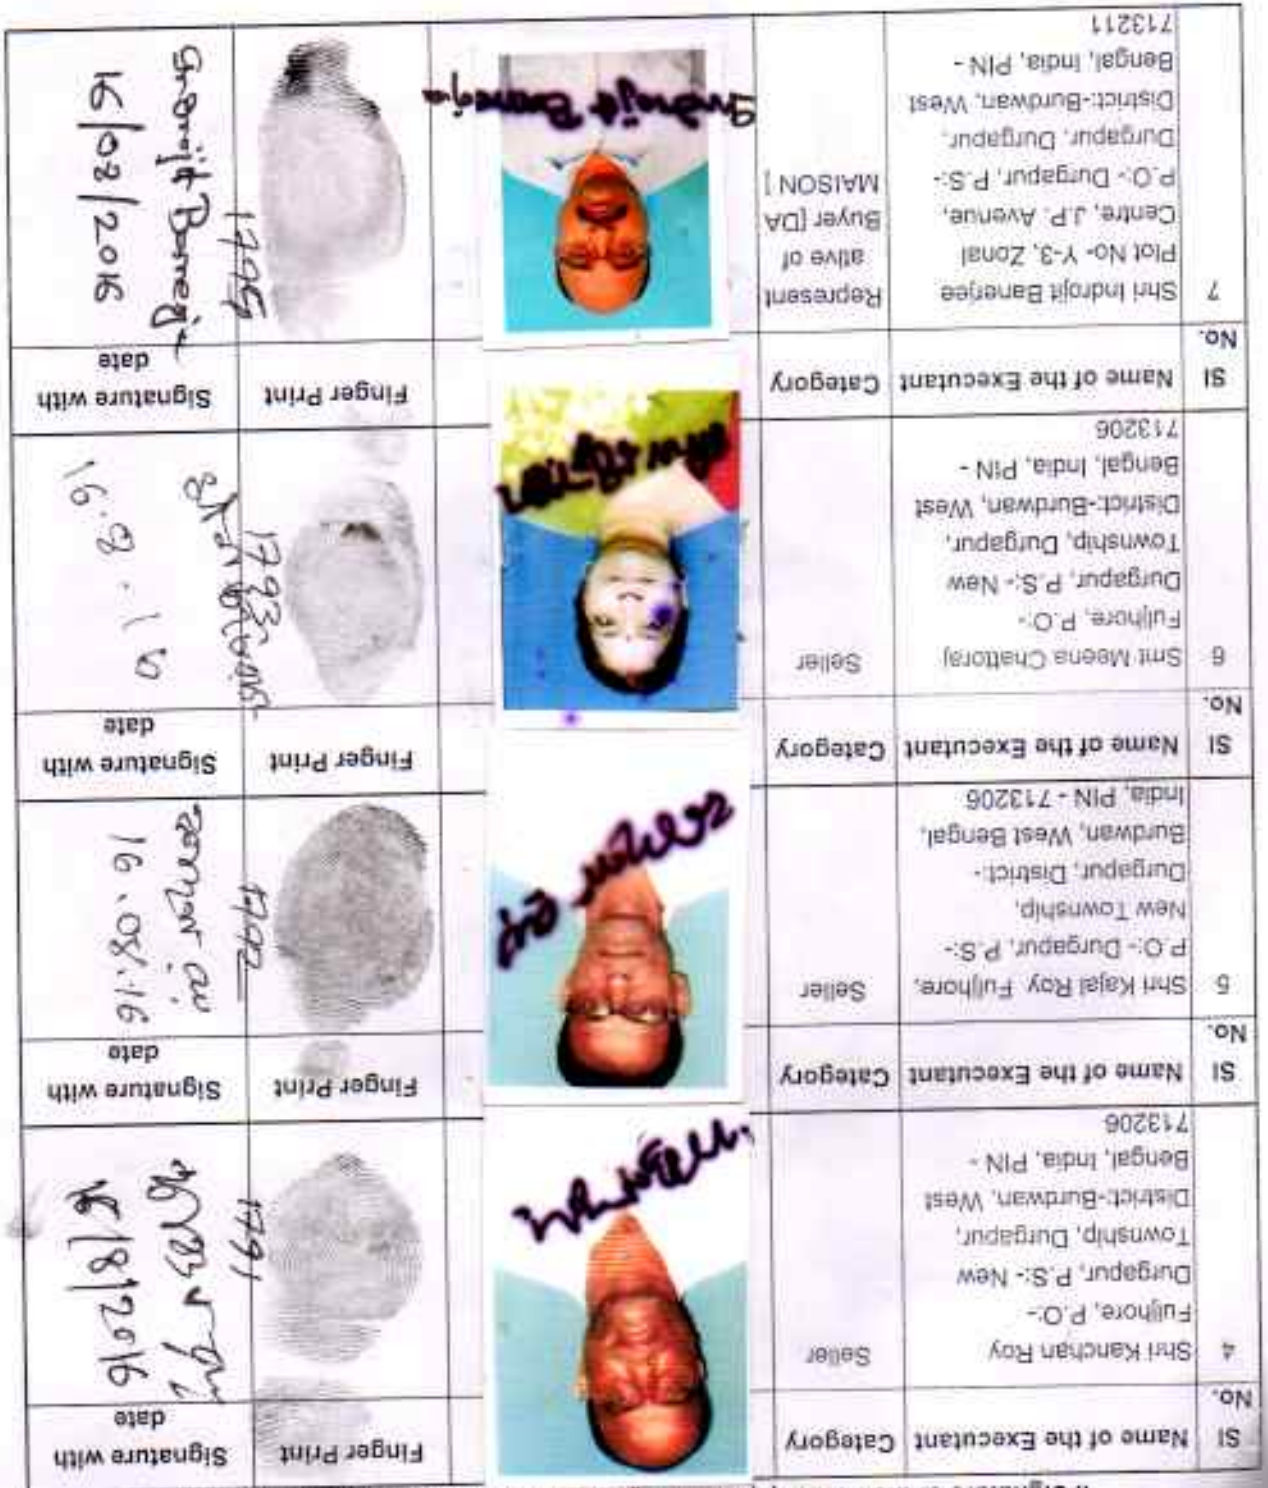 Sl
No.
Name of the Executant
Category
Finger Print
Signature with
date
4
Shri Kanchan Roy
Fuljhore, P.O:-
Durgapur, P.S:- New
Township, Durgapur,
District:-Burdwan, West
Bengal, India, PIN -
713206
Seller
1791
16/8/2016
Sl
No.
Name of the Executant
Category
Finger Print
Signature with
date
5
Shri Kajal Roy Fuljhore,
P.O:- Durgapur, P.S:-
New Township,
Durgapur, District:-
Burdwan, West Bengal,
India, PIN - 713206
Seller
1792
16.08.16
Sl
No.
Name of the Executant
Category
Finger Print
Signature with
date
6
Smt Meena Chattoraj
Fuljhore, P.O:-
Durgapur, P.S:- New
Township, Durgapur,
District:-Burdwan, West
Bengal, India, PIN -
713206
Seller
1793
Sl
No.
Name of the Executant
Category
Finger Print
Signature with
date
7
Shri Indrojit Banerjee
Plot No- Y-3, Zonal
Centre, J.P. Avenue,
P.O:- Durgapur, P.S:-
Durgapur, Durgapur,
District:-Burdwan, West
Bengal, India, PIN -
713211
Represent
ative of
Buyer [DA
MAISON ]
Indrojit Banerjee
1795
Indrojit Banerjee
16/08/2016